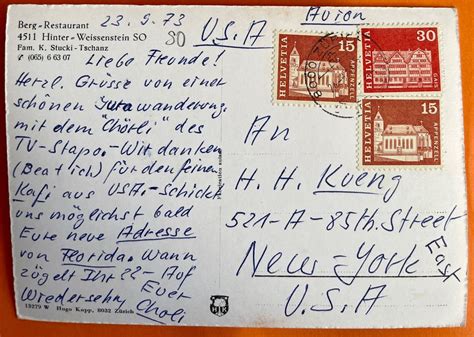 Berg-Restaurant
4511 Hinter-Weissenstein SO
Fam. K. Stucki-Tschanz
(065) 6 63 07
23.9.73
30
U.S.A
Avion
Liebe Freunde!
Herzl. Grüsse von einer
schönen Jurawanderung
mit dem "Chörli" des
TV-Stapo. - Wir danken
(Beat + ich) für den feinen
Kafi aus USA. - Schickt
uns möglichst bald
Eure neue Adresse
von Florida. Wann
zügelt Ihr ?? - Auf
Wiedersehn, Euer
Chöli
HELVETIA
15
APPENZELL
HELVETIA
30
GAIS
HELVETIA
15
APPENZELL
An
H. H. Kueng
521-A-85th. Street
East
New-York
U.S.A
13279 W Hugo Kopp, 8032 Zürich